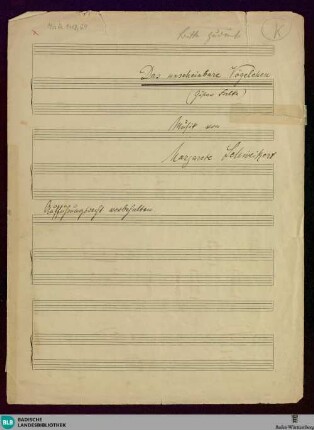 K
Das unscheinbare Vögelchen
(Gustav Falke)
Musik von
Margarete Schweikert
Aufführungsrecht vorbehalten
BLB BADISCHE
LANDESBIBLIOTHEK
Baden-Württemberg